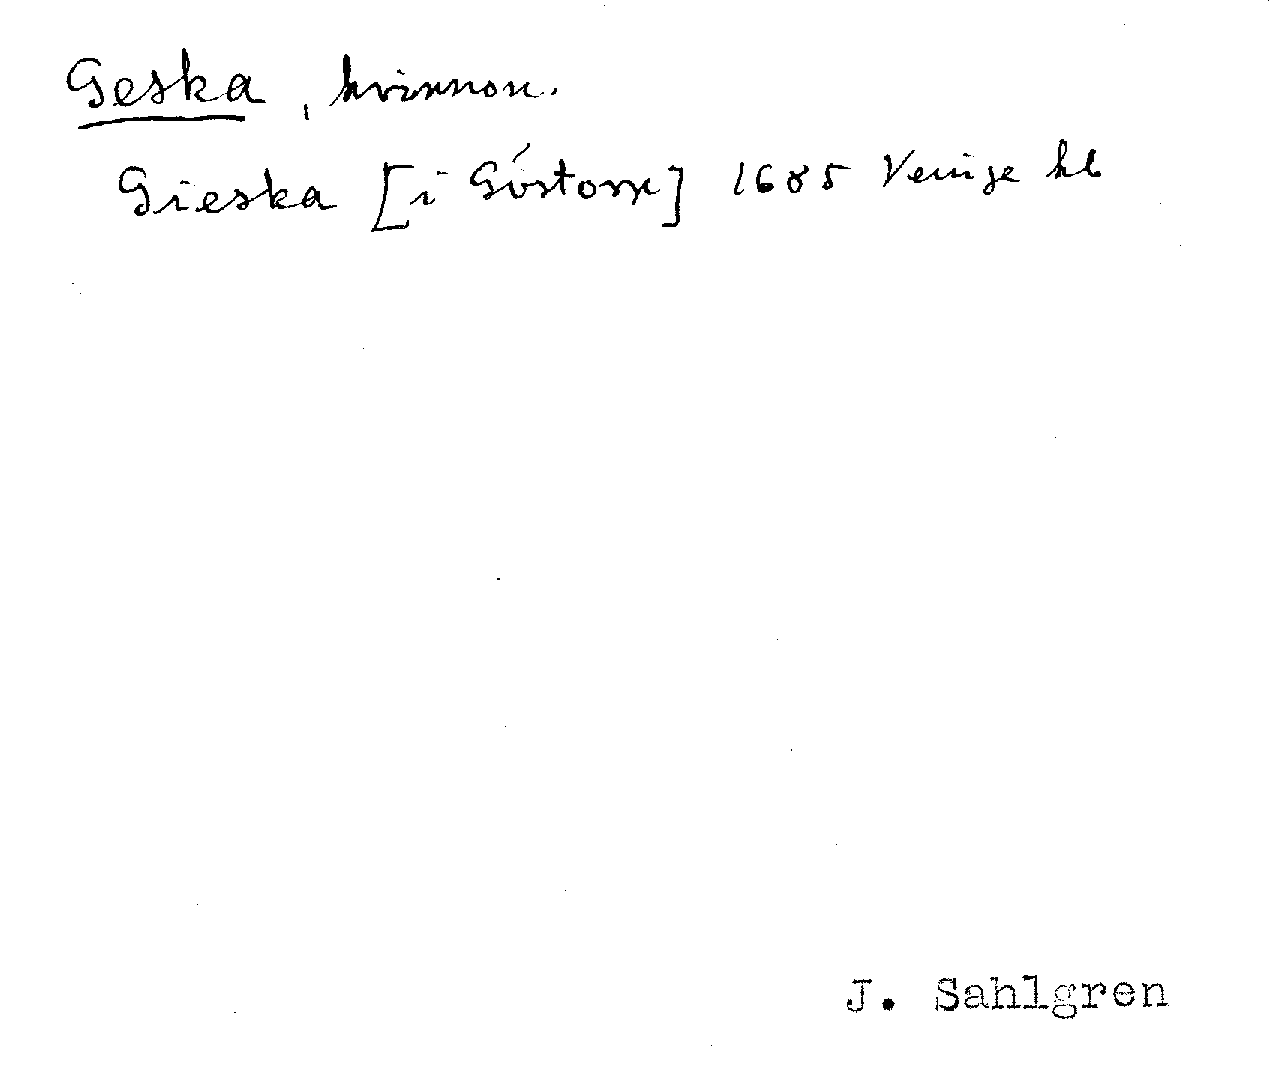 Geska, kvinnon.
Gieska [i Göstorp] 1685 Veinge kb
J. Sahlgren